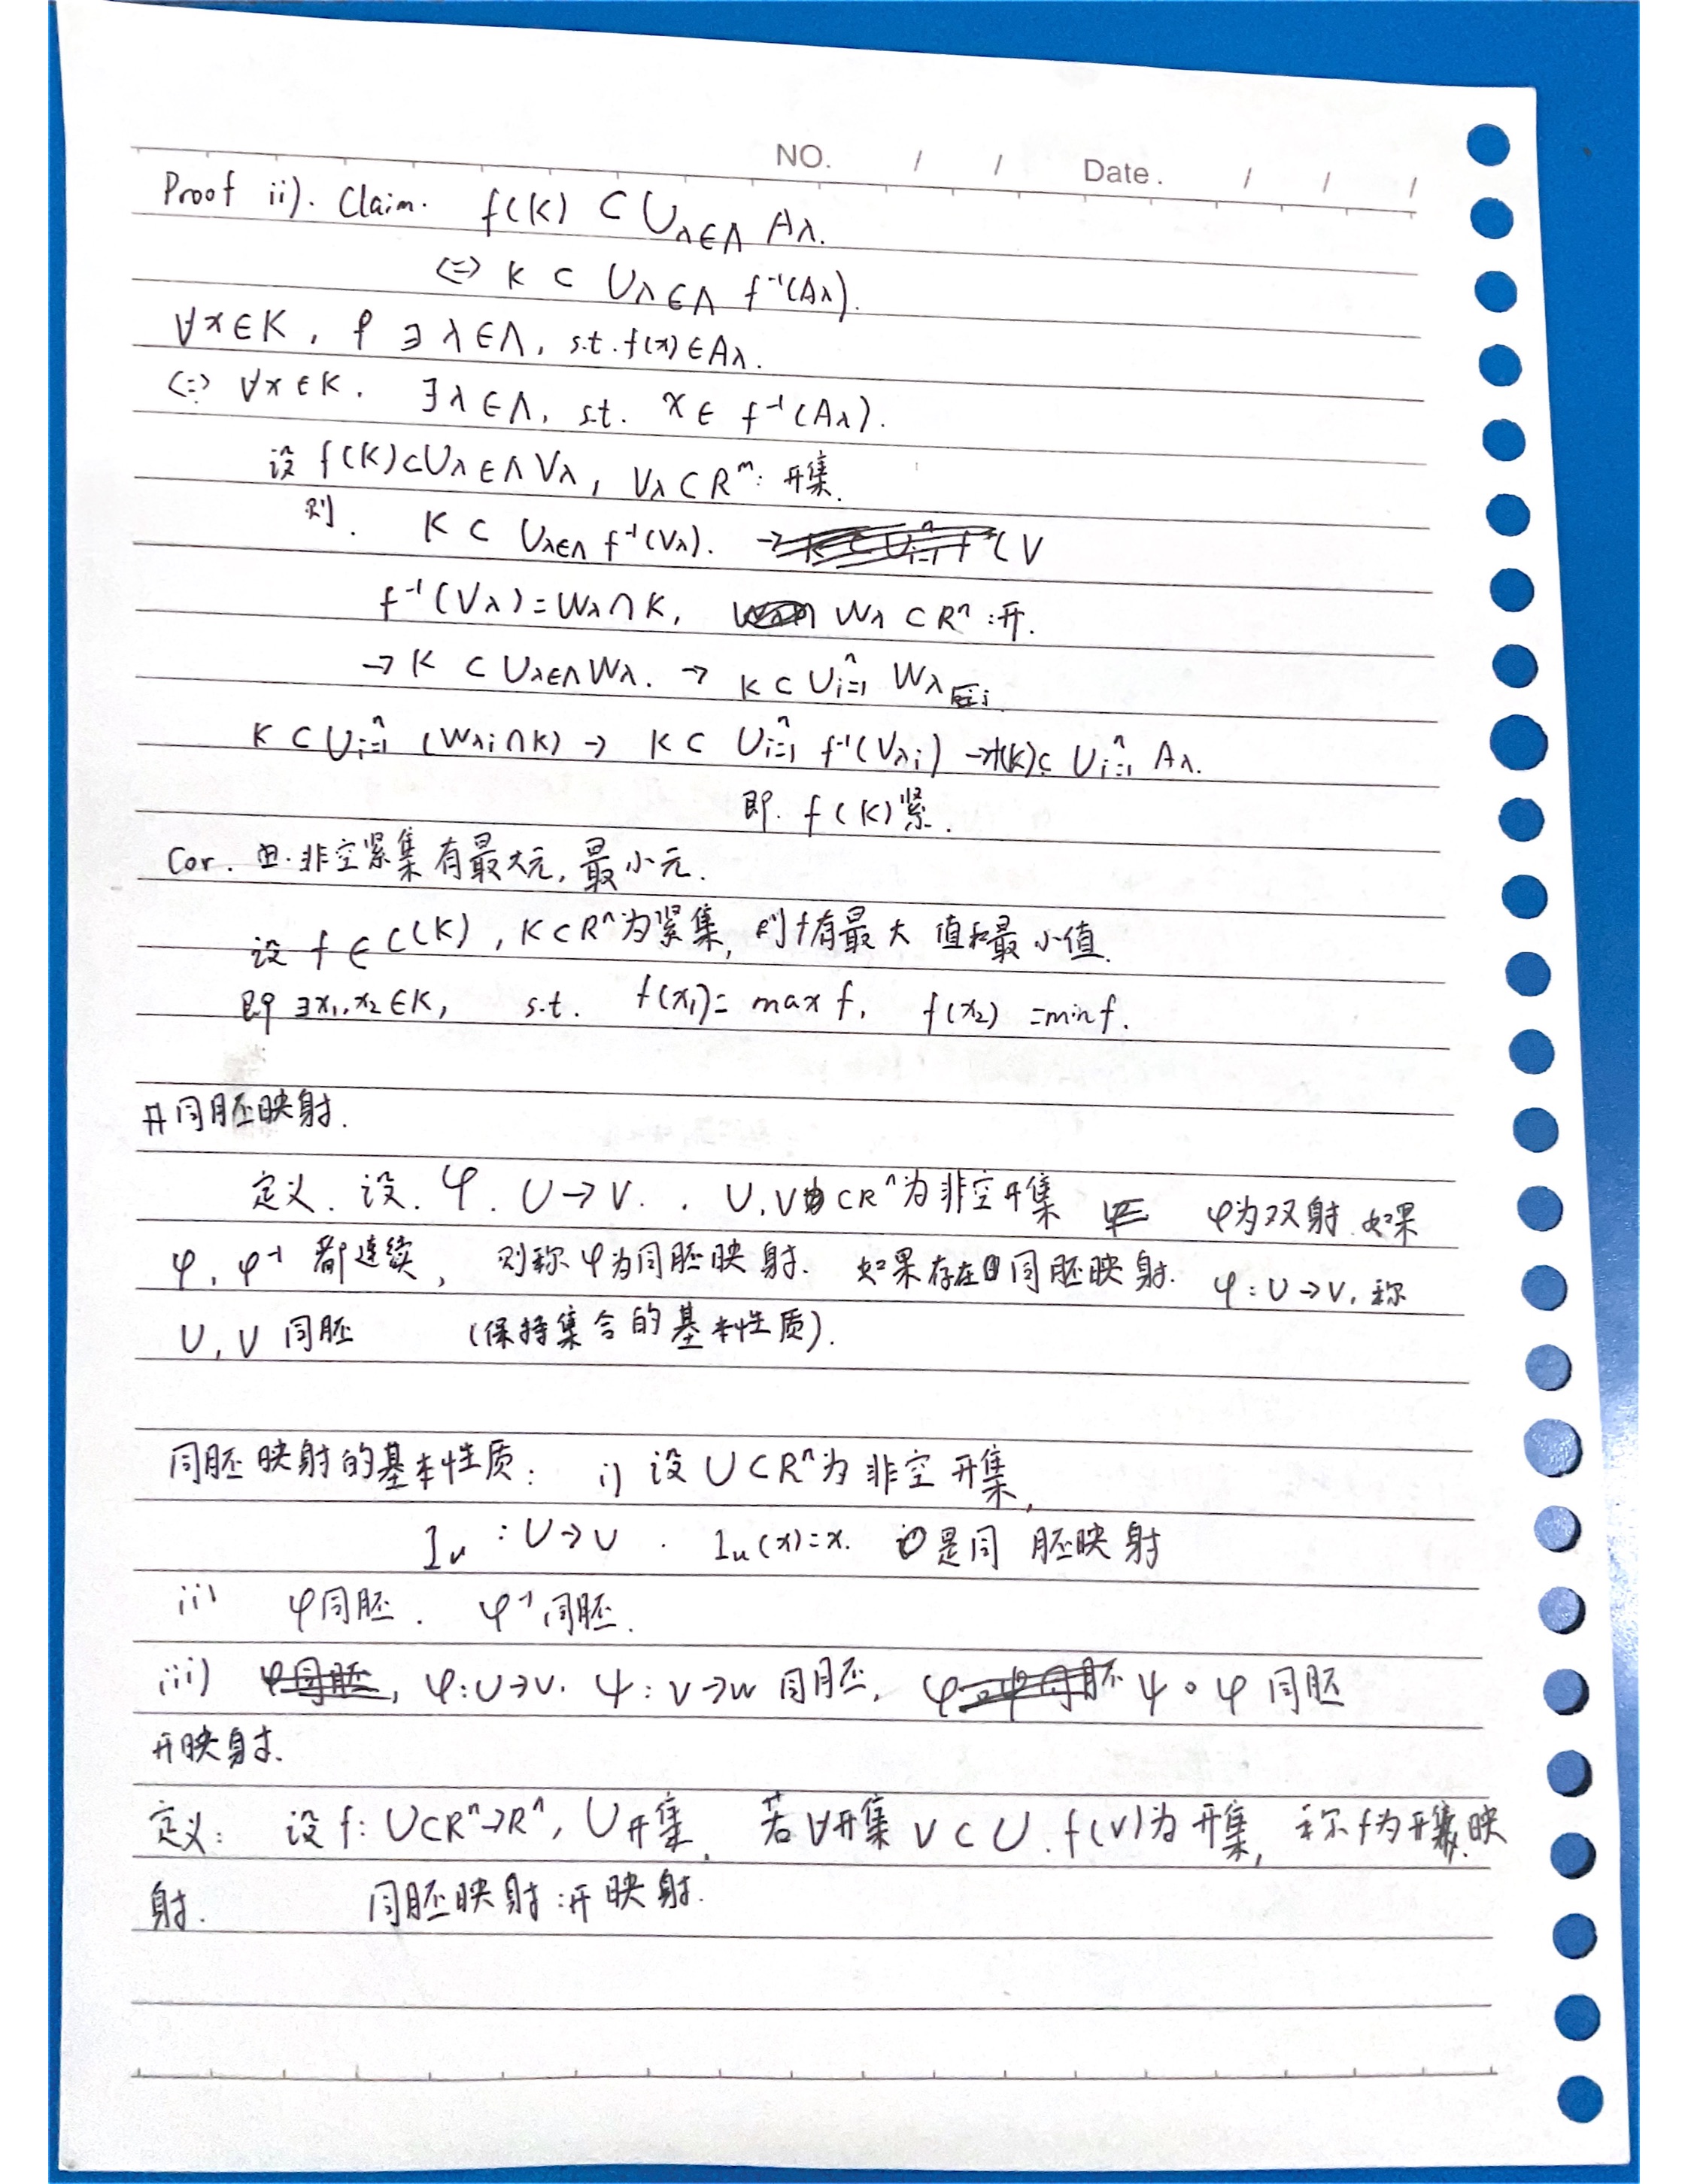 NO. / / Date. / / /
Proof ii). Claim. f(K) ⊂ ∪λ∈Λ Aλ.
⇔ K ⊂ ∪λ∈Λ f⁻¹(Aλ).
∀x∈K, ∃ λ∈Λ, s.t. f(x)∈Aλ.
⇔ ∀x∈K. ∃λ∈Λ, s.t. x∈ f⁻¹(Aλ).
设 f(K)⊂∪λ∈Λ Vλ, Vλ⊂Rᵐ: 开集.
则. K ⊂ ∪λ∈Λ f⁻¹(Vλ). →
f⁻¹(Vλ)=Wλ∩K, Wλ⊂Rⁿ:开.
→ K ⊂ ∪λ∈Λ Wλ. → K⊂∪ⁿi=1 Wλi
K⊂∪ⁿi=1 (Wλi∩K) → K⊂ ∪ⁿi=1 f⁻¹(Vλi) →f(K)⊂ ∪ⁿi=1 Aλ.
即. f(K)紧.
Cor. 由.非空紧集有最大元,最小元.
设 f∈C(K), K⊂Rⁿ为紧集, 则f有最大值和最小值.
即∃x₁,x₂∈K, s.t. f(x₁)= max f, f(x₂)=min f.
#同胚映射.
定义. 设. φ. U→V. . U,V⊂Rⁿ为非空开集 φ为双射.如果
φ, φ⁻¹ 都连续, 则称φ为同胚映射. 如果存在同胚映射. φ:U→V, 称
U, V 同胚 (保持集合的基本性质).
同胚映射的基本性质: i) 设U⊂Rⁿ为非空开集,
1u :U→U . 1u(x)=x. 是同胚映射
ii) φ同胚. φ⁻¹同胚.
iii) φ:U→V. ψ:V→W 同胚, ψ∘φ 同胚
开映射.
定义: 设f: U⊂Rⁿ→Rⁿ, U开集. 若∀开集V⊂U. f(V)为开集, 称f为开集映
射. 同胚映射:开映射.